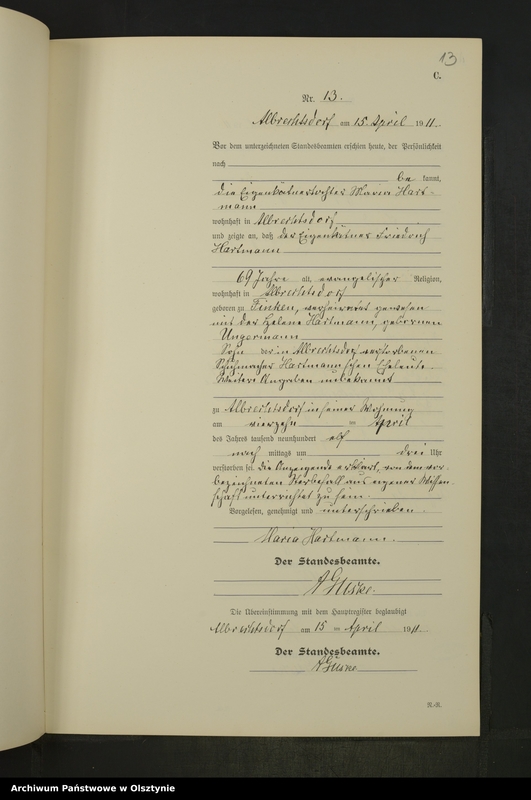 13
C.
Nr. 13.
Albrechtsdorf am 15. April 1911.
Vor dem unterzeichneten Standesbeamten erschien heute, der Persönlichkeit
nach
be kannt,
die Eigenkätnertochter Maria Hart-
mann
wohnhaft in Albrechtsdorf
und zeigte an, daß der Eigenkätner Friedrich
Hartmann
69 Jahre alt, evangelischer Religion,
wohnhaft in Albrechtsdorf
geboren zu Finken, verheiratet gewesen
mit der Helene Hartmann, geborenen
Ungermann
Sohn der in Albrechtsdorf verstorbenen
Schuhmacher Hartmann'schen Eheleute.
Weitere Angaben unbekannt
zu Albrechtsdorf in seiner Wohnung
am vierzehn ten April
des Jahres tausend neunhundert elf
nach mittags um drei Uhr
verstorben sei. Die Anzeigende erklärt, von dem vor-
bezeichneten Sterbefall aus eigener Wissen-
schaft unterrichtet zu sein.
Vorgelesen, genehmigt und unterschrieben.
Maria Hartmann.
Der Standesbeamte.
A Guske.
Die Übereinstimmung mit dem Hauptregister beglaubigt
Albrechtsdorf am 15 ten April 1911.
Der Standesbeamte.
A Guske
Archiwum Państwowe w Olsztynie